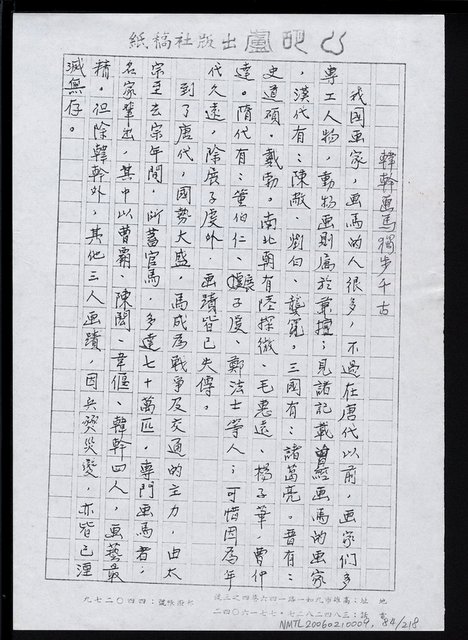 山巴盧出版社稿紙
韓幹畫馬獨步千古
我國畫家，畫馬的人很多，不過在唐代以前，畫家們多
專工人物，動物畫則屬於兼擅；見諸記載曾經畫馬的畫家
，漢代有：陳敞、劉白、龔寬，三國有：諸葛亮。晉有：
史道碩、戴勃。南北朝有陸探微、毛惠遠、楊子華，曹仲
達。隋代有：董伯仁、展子虔、鄭法士等人；可惜因為年
代久遠，除展子虔外，畫蹟皆已失傳。
到了唐代，國勢大盛，馬成為戰爭及交通的主力，由太
宗至玄宗年間，所蓄官馬，多達七十萬匹，專門畫馬者，
名家輩出，其中以曹霸、陳閎、韋偃、韓幹四人，畫藝最
精，但除韓幹外，其他三人畫蹟，因兵燹災變，亦皆已湮
滅無存。
NMTL20060210009. 84/218